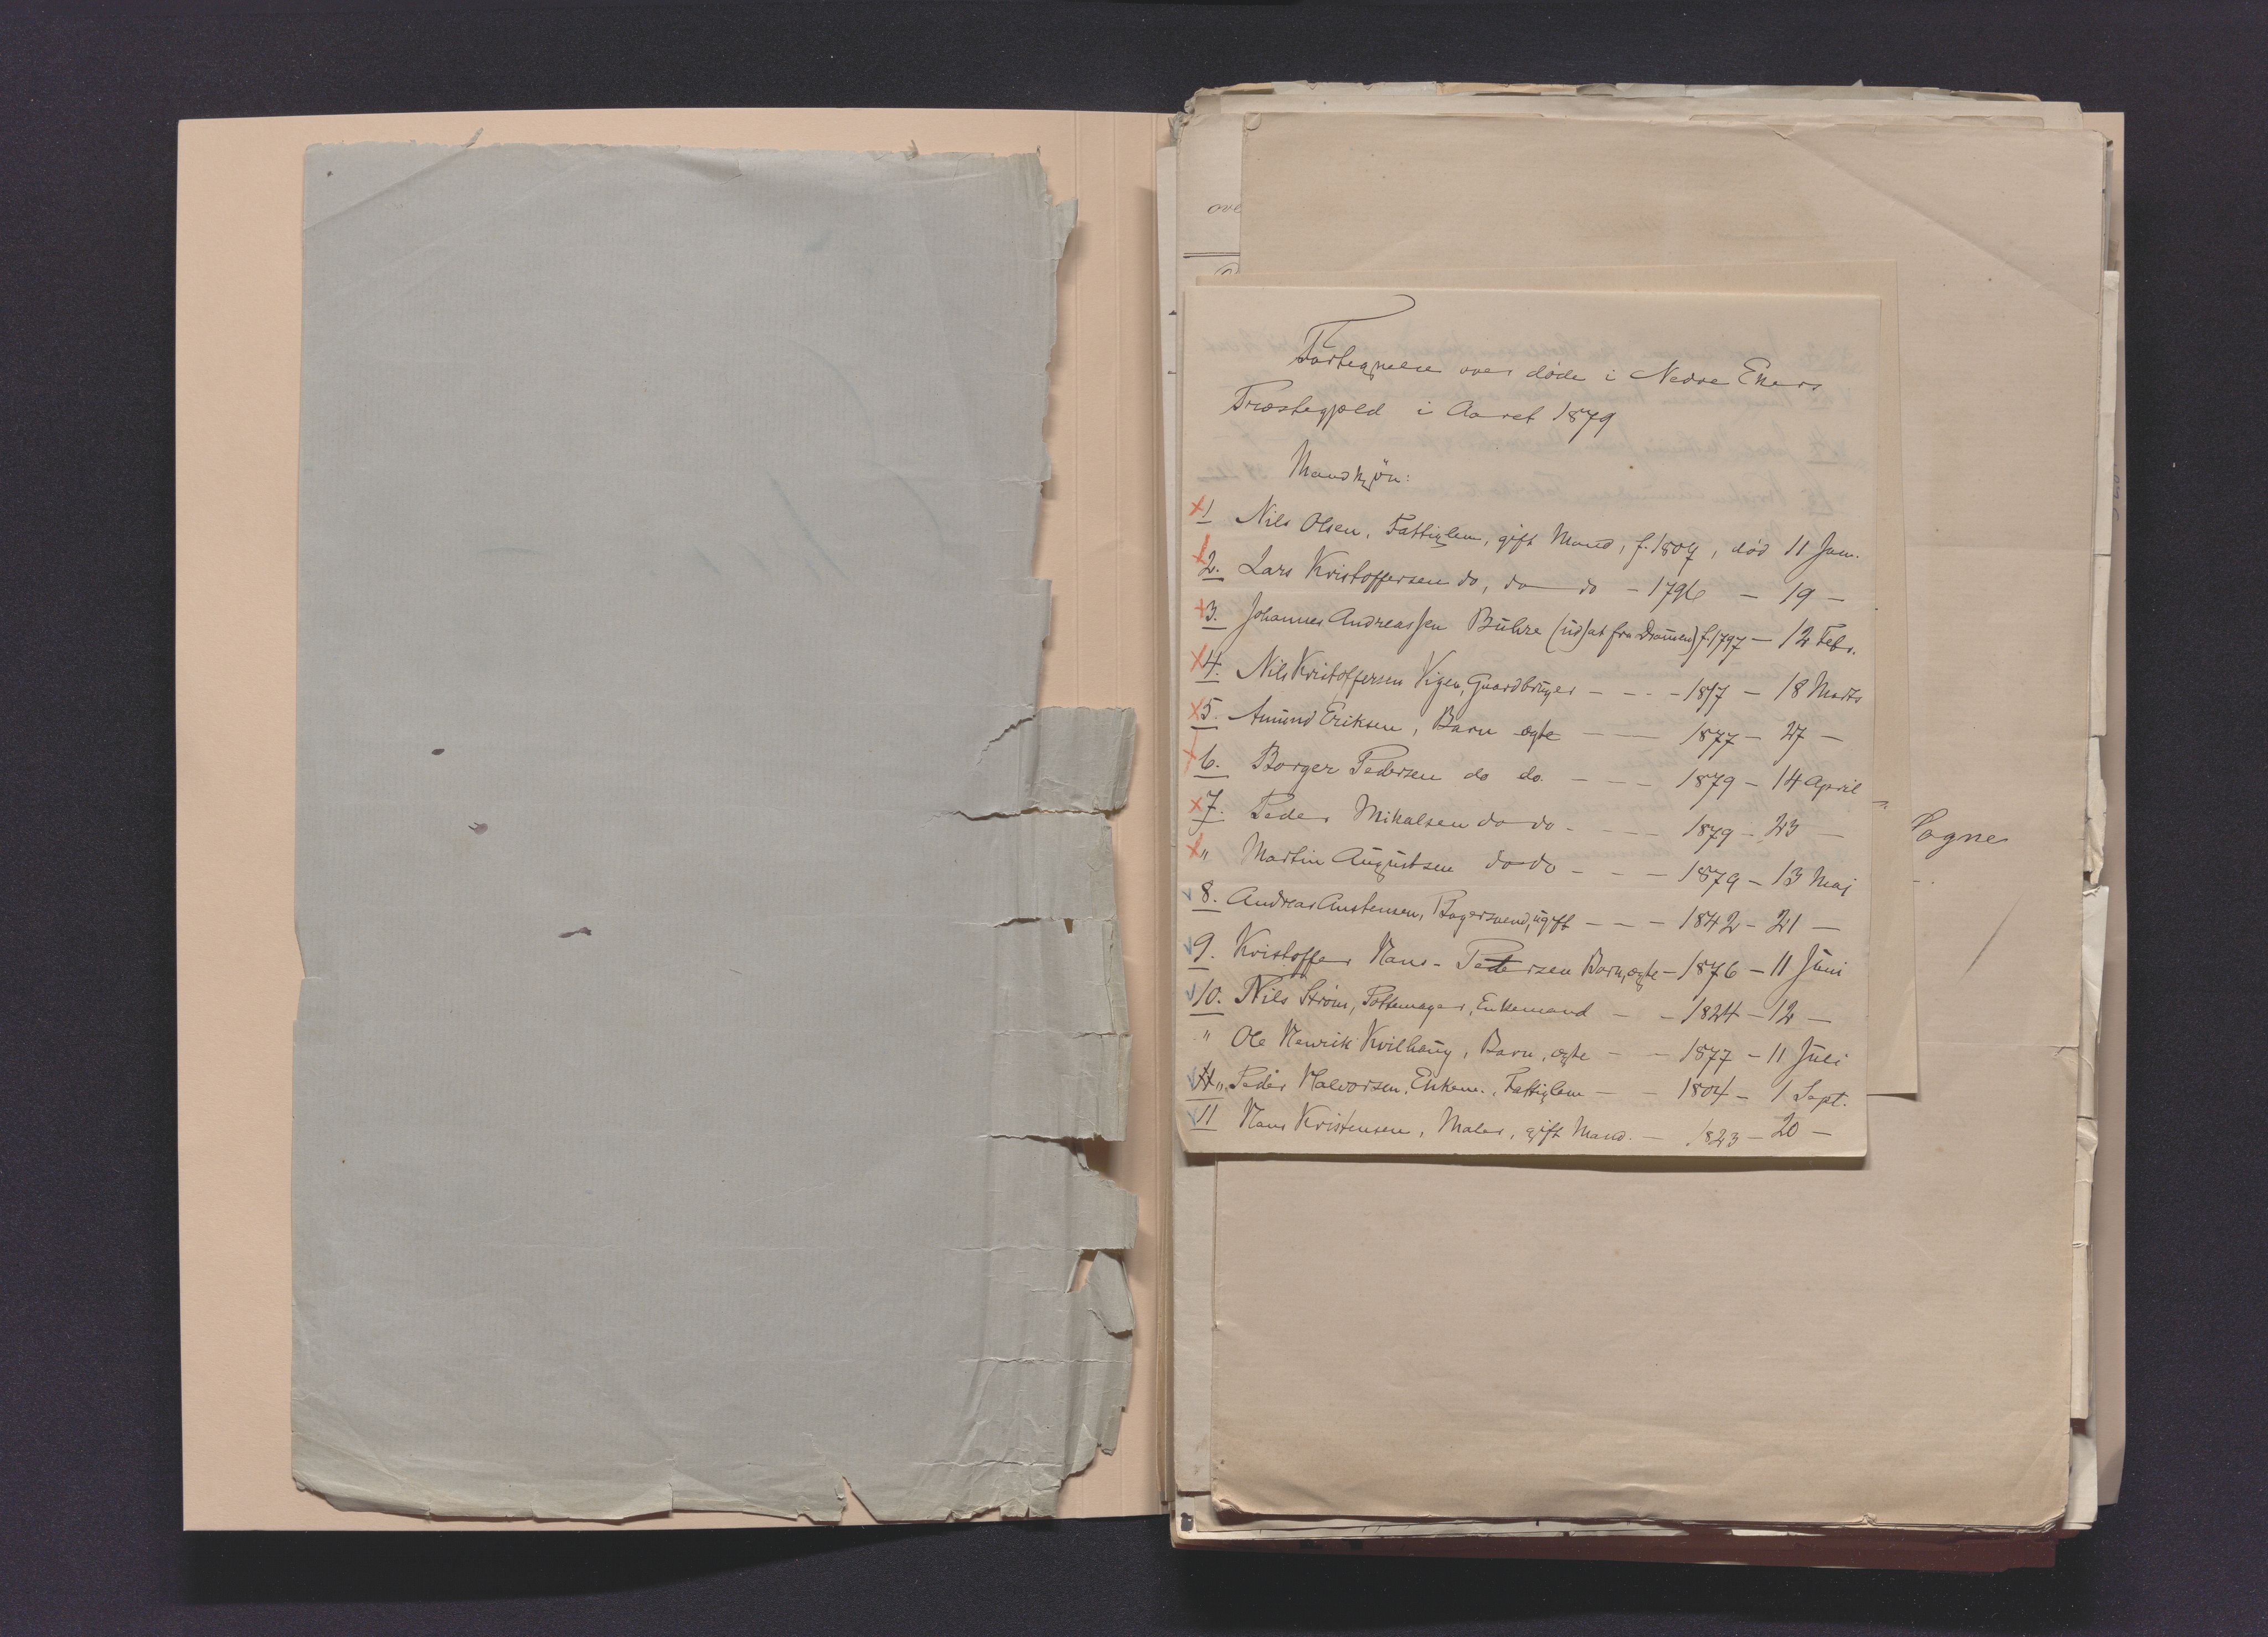 Fortegnelse over døde i Nedre Ekers
Præstegjæld i Aaret 1879
Mandkjön:
1 Nils Olsen, Fattiglem, gift Mand, f. 1807, död 11 Jan.
2. Lars Kristoffersen do, do do - 1796 - 19 -
3. Johannes Andreassen Buhre (udsat fra Drammen) f. 1797 - 12 Febr.
4. Nils Kristoffersen Vigen, Gaardbruger - - - 1817 - 18 Marts
5. Amund Eriksen, Barn ægte - - 1877 - 27 -
6. Borger Pedersen do do. - - - 1879 - 14 April
7. Peder Mikalsen do do - - - - 1879 - 23 -
" Martin Augustsen do do - - - 1879 - 13 Maj
8. Andreas Austensen, Bagersvend, ugift - - - 1842 - 21 -
9. Kristoffer Hans- Pedersen Barn, ægte - 1876 - 11 Juni
10. Nils Ström, Pottemager, Enkemand - - 1824 - 12 -
" Ole Henrik Kvilhaug, Barn, ægte - - 1877 - 11 Juli
11 " Peder Halvorsen, Enkem., Fattiglem - - 1804 - 1 Sept.
11 Hans Kristensen, Maler, gift Mand. - 1823 - 20 -
ove
Sogne